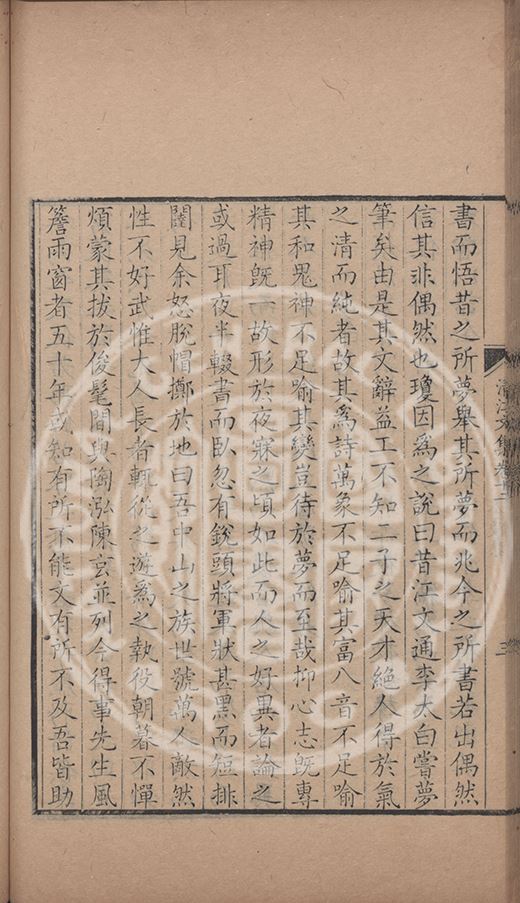 書而悟昔之所夢舉其所夢而兆今之所書若出偶然
信其非偶然也瓊因爲之說曰昔江文通李太白嘗夢
筆矣由是其文辭益工不知二子之天才絶人得於氣
之清而純者故其爲詩萬象不足喻其富八音不足喻
其和鬼神不足喻其變豈待於夢而至哉抑心志既專
精神既一故形於夜寐之頃如此而人之好異者論之
或過耳夜半輟書而臥忽有銳頭將軍狀甚黑而短排
闥見余怒脫帽擲於地曰吾中山之族世號萬人敵然
性不好武惟大人長者輒從之遊爲之執役朝暮不憚
煩蒙其拔於俊髦間與陶泓陳玄並列今得事先生風
簷雨窗者五十年或知有所不能文有所不及吾皆助
清江文集卷十二
三